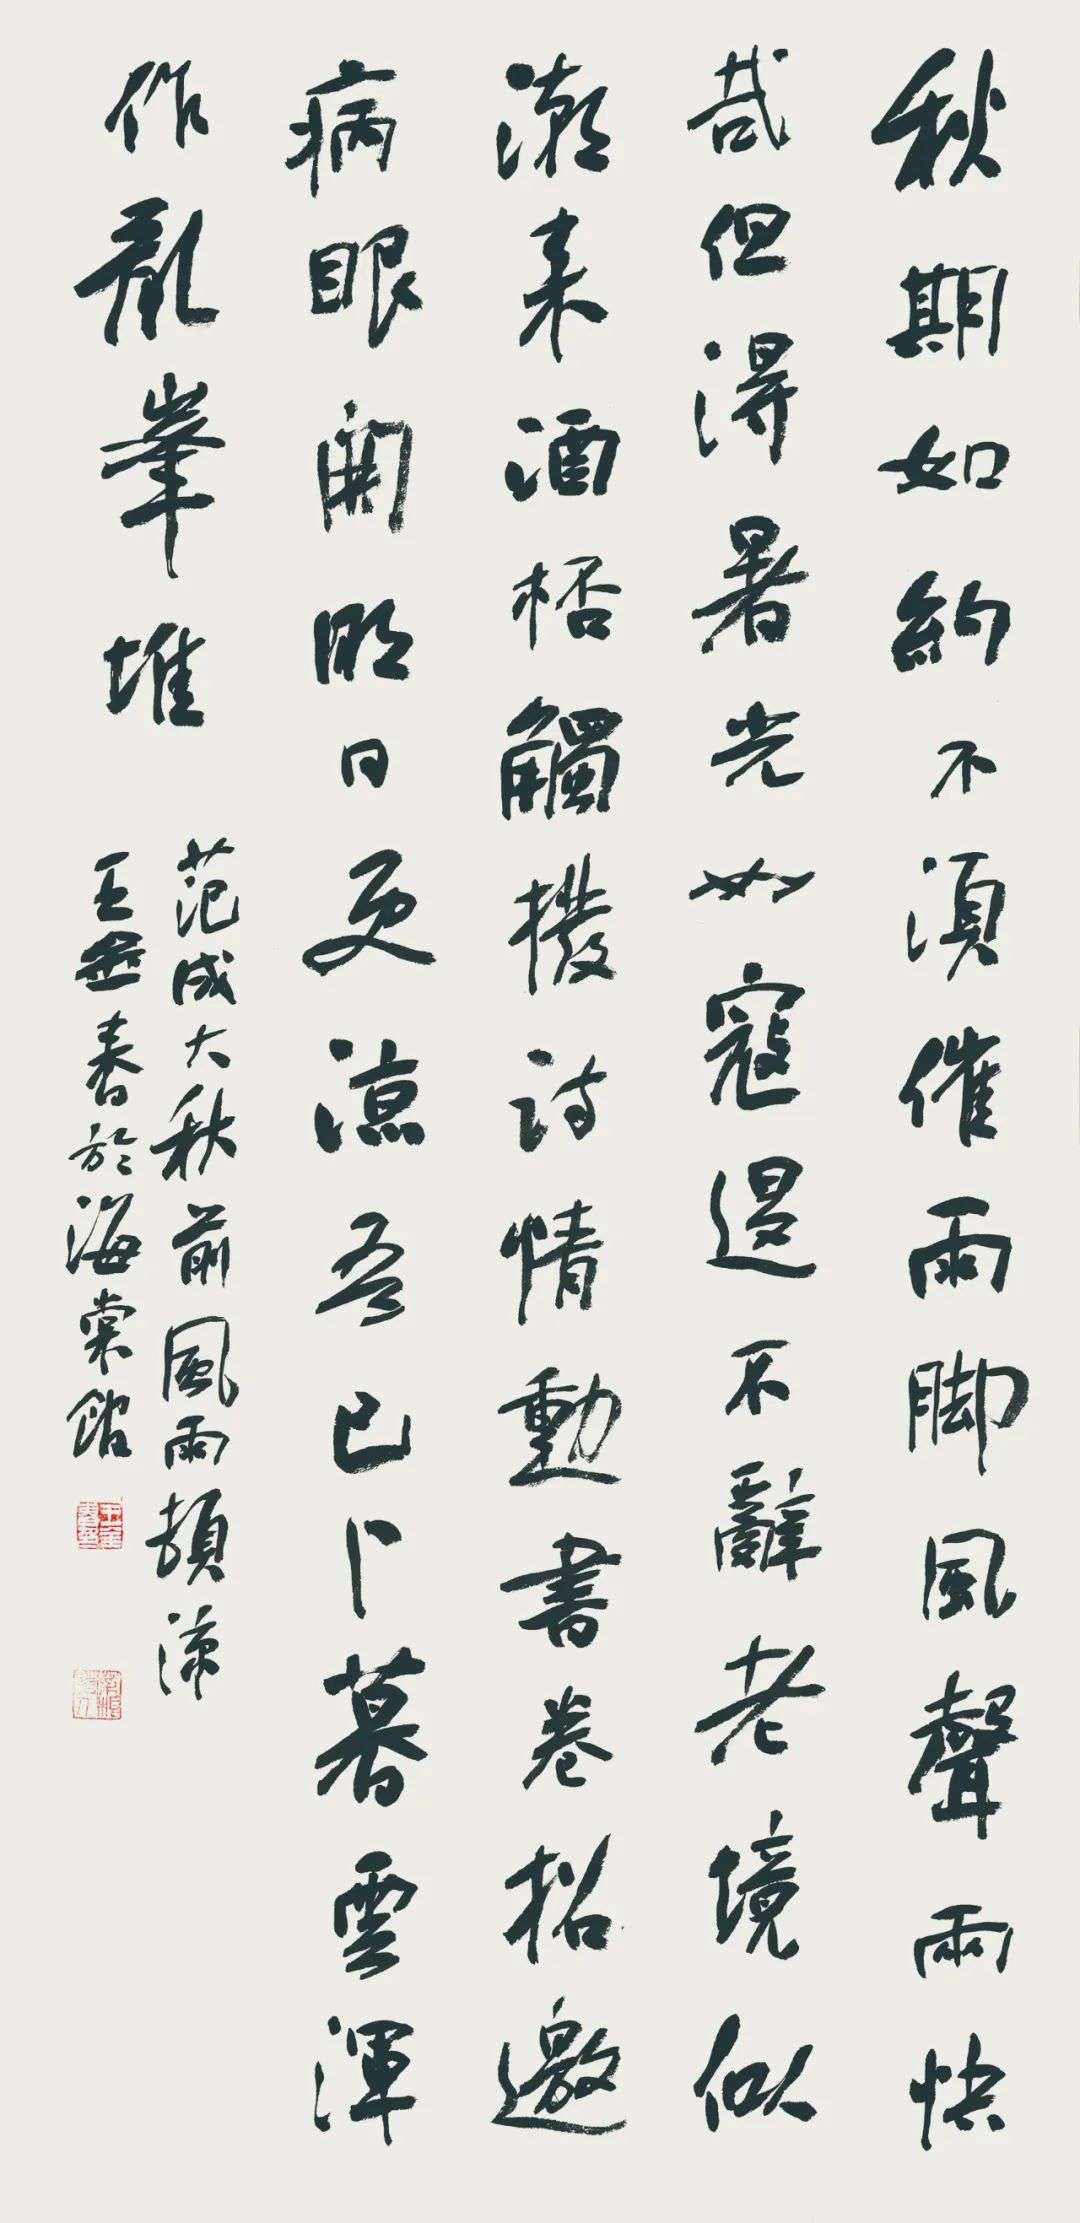 秋期如約不須催雨脚風聲兩快
哉但得暑光如寇退不辭老境似
潮来酒桮觸撥詩情動書卷招邀
病眼開明日更涼吾已卜暮雲渾
作亂峯堆
范成大秋前風雨頓涼
王登春於海棠館